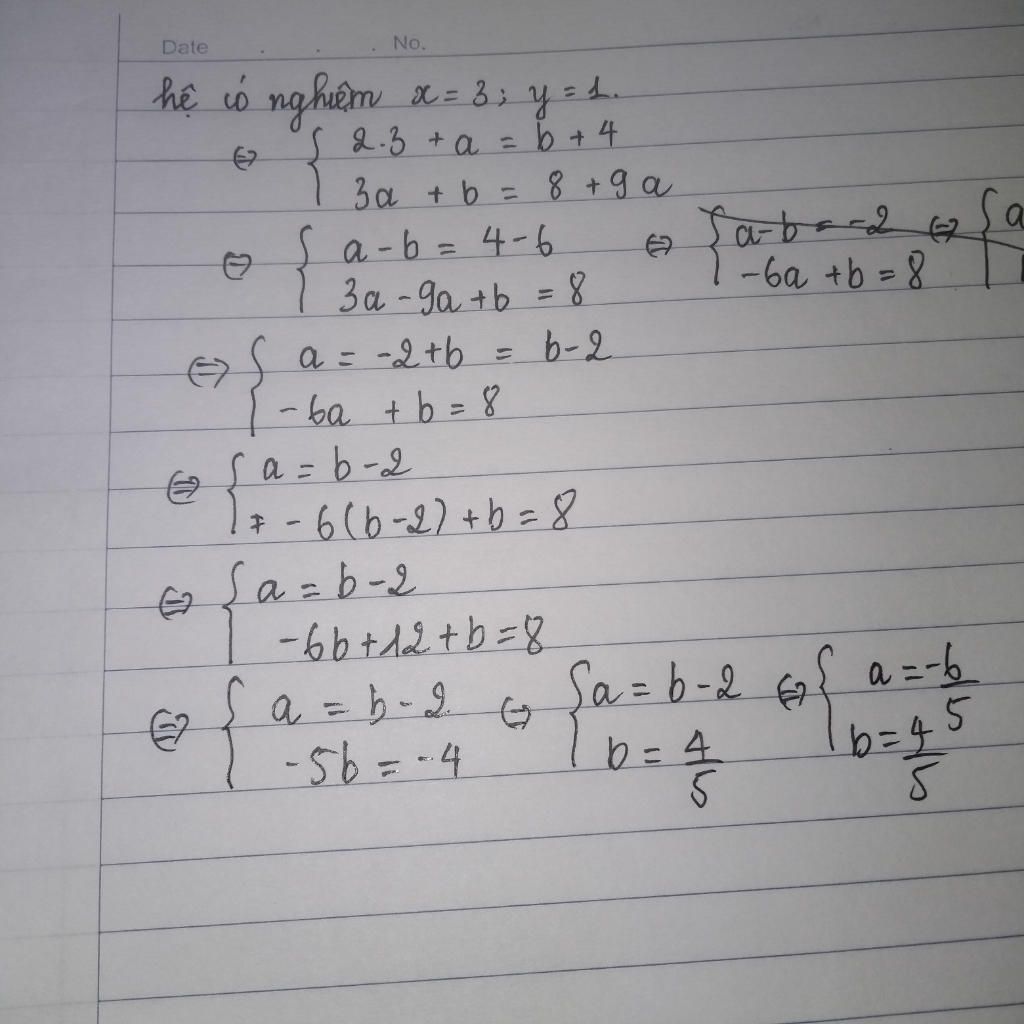 Date . . . No.
hệ có nghiệm x = 3; y = 1.
⇔ { 2.3 + a = b + 4
3a + b = 8 + 9a
⇔ { a - b = 4 - 6 ⇔ { a - b = -2 ⇔ { a
3a - 9a + b = 8 -6a + b = 8
⇔ { a = -2 + b = b - 2
-6a + b = 8
⇔ { a = b - 2
- 6(b - 2) + b = 8
⇔ { a = b - 2
-6b + 12 + b = 8
⇔ { a = b - 2 ⇔ { a = b - 2 ⇔ { a = -6/5
-5b = -4 b = 4/5 b = 4/5